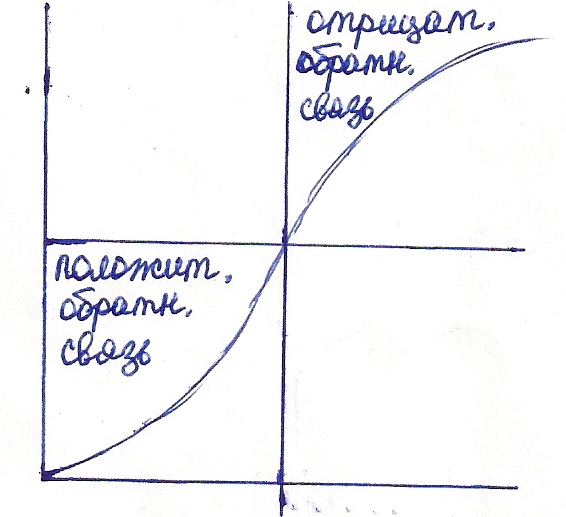 отрицат.
обратн.
связь
положит.
обратн.
связь